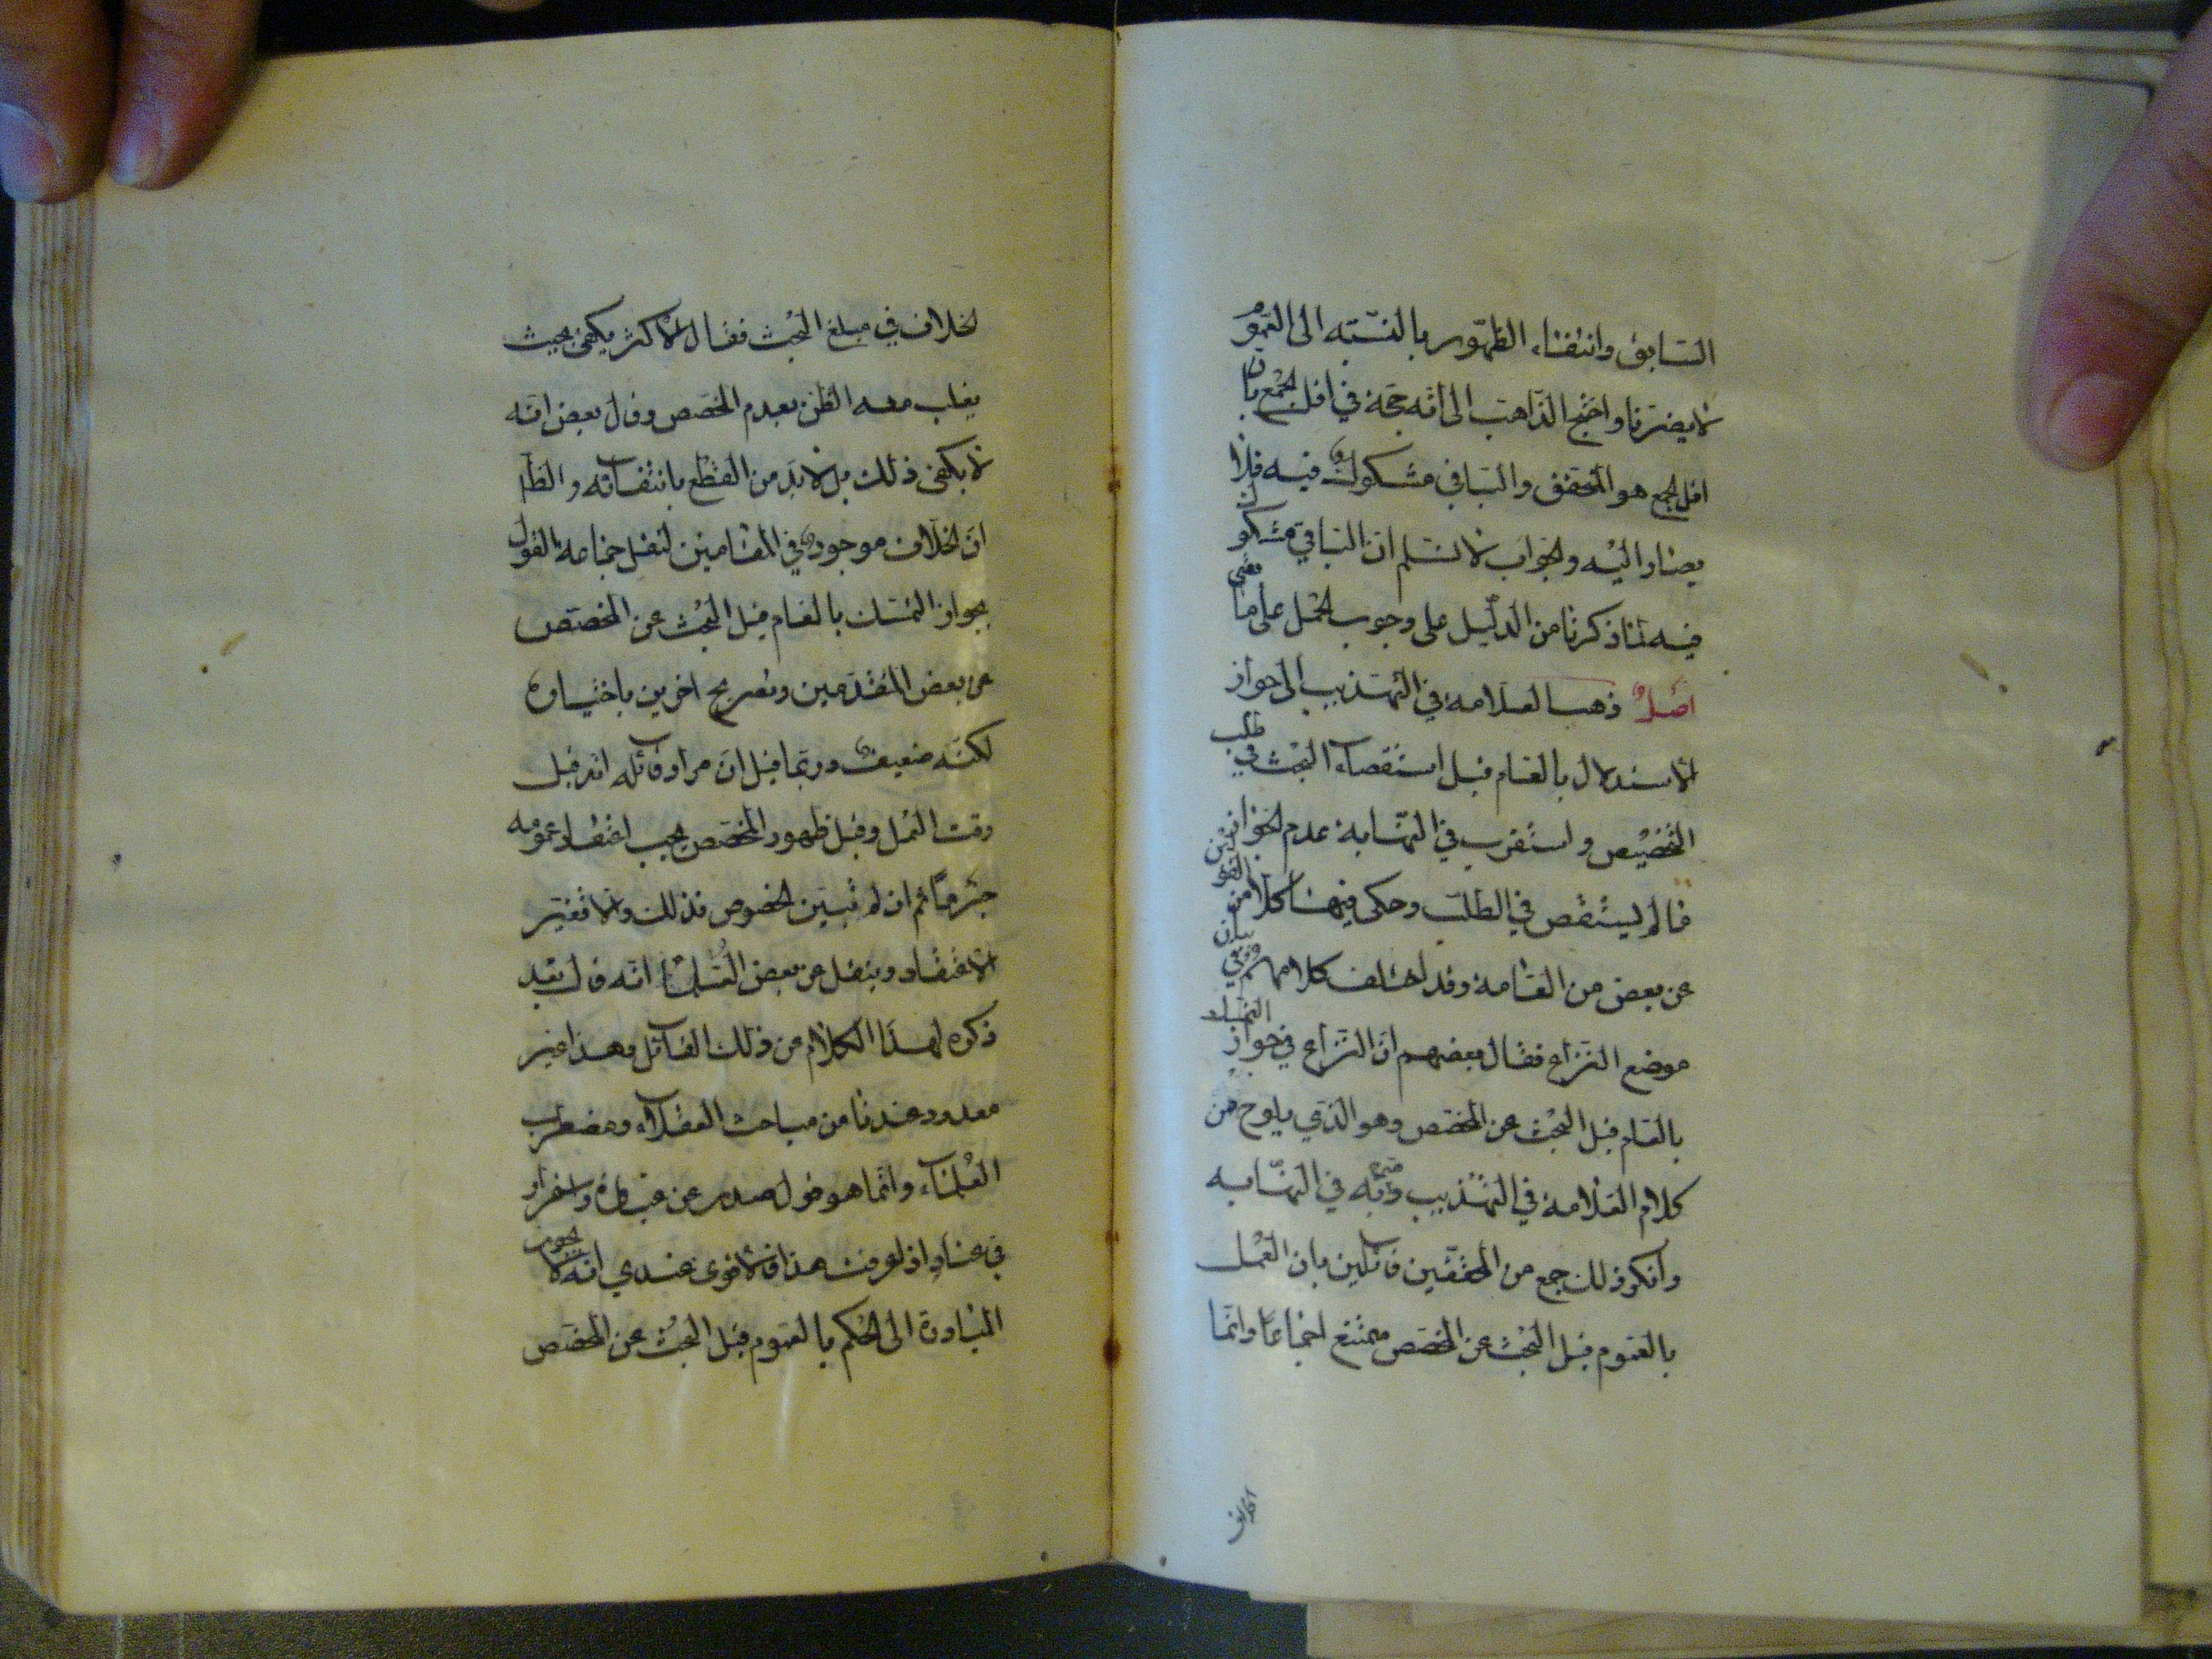 السابق وانتفاء الظهور بالنسبة الى العموم
لا يضرنا واحتج الذاهب الى انه حجة في اقل الجمع بان
اقل الجمع هو المحقق والباقي مشكوك فيه فلا
يصار اليه والجواب لا نسلم ان الباقي مشكوك
فيه لما ذكرنا من الدليل على وجوب الحمل على ما بقي
اصل ذهب العلامة في التهذيب الى جواز
الاستدلال بالعام قبل استقصاء البحث في طلب
التخصيص واستقرب في النهاية عدم الجواز
ما لم يستقص في الطلب وحكى فيهما كلا من القولين
عن بعض من العامة وقد اختلف كلامهم في بيان
موضع النزاع فقال بعضهم ان النزاع في جواز التمسك
بالعام قبل البحث عن المخصص وهو الذي يلوح من
كلام العلامة في التهذيب وصرح به في النهاية
وانكر ذلك جمع من المحققين قائلين بان العمل
بالعموم قبل البحث عن المخصص ممتنع اجماعا وانما
الخلاف
الخلاف في مبلغ البحث فقال الاكثر يكفي بحيث
يغلب معه الظن بعدم المخصص وقال بعض انه
لا يكفي ذلك بل لا بد من القطع بانتفائه والظا
ان الخلاف موجود في المقامين لنقل جماعة القول
بجواز التمسك بالعام قبل البحث عن المخصص
عن بعض المتقدمين وتصريح اخرين باختياره
لكنه ضعيف وربما قيل ان مراد قائله انه قبل
وقت العمل وقبل ظهور المخصص يجب اعتقاد عمومه
جزما ثم ان لم يتبين الخصوص فذلك والا تغير
الاعتقاد وينقل عن بعض العلماء انه قال بعد
ذكره لهذا الكلام عن ذلك القائل وهذا غير
معدود عندنا من مباحث العقلاء ومضطرب
العلماء وانما هو قول صدر عن غباوة واستمرار
في عناد اذا عرفت هذا فالاقوى عندي انه لا يجوز
المبادرة الى الحكم بالعموم قبل البحث عن المخصص